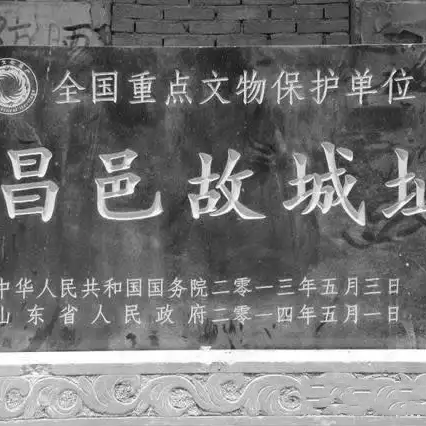 全国重点文物保护单位
昌邑故城址
中华人民共和国国务院二零一三年五月三日
山东省人民政府二零一四年五月一日